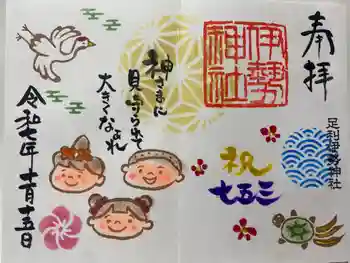 奉拝
伊勢
神社
足利伊勢神社
祝
七五三
神さまに
見守られて
大きくなあれ
令和七年十一月十五日